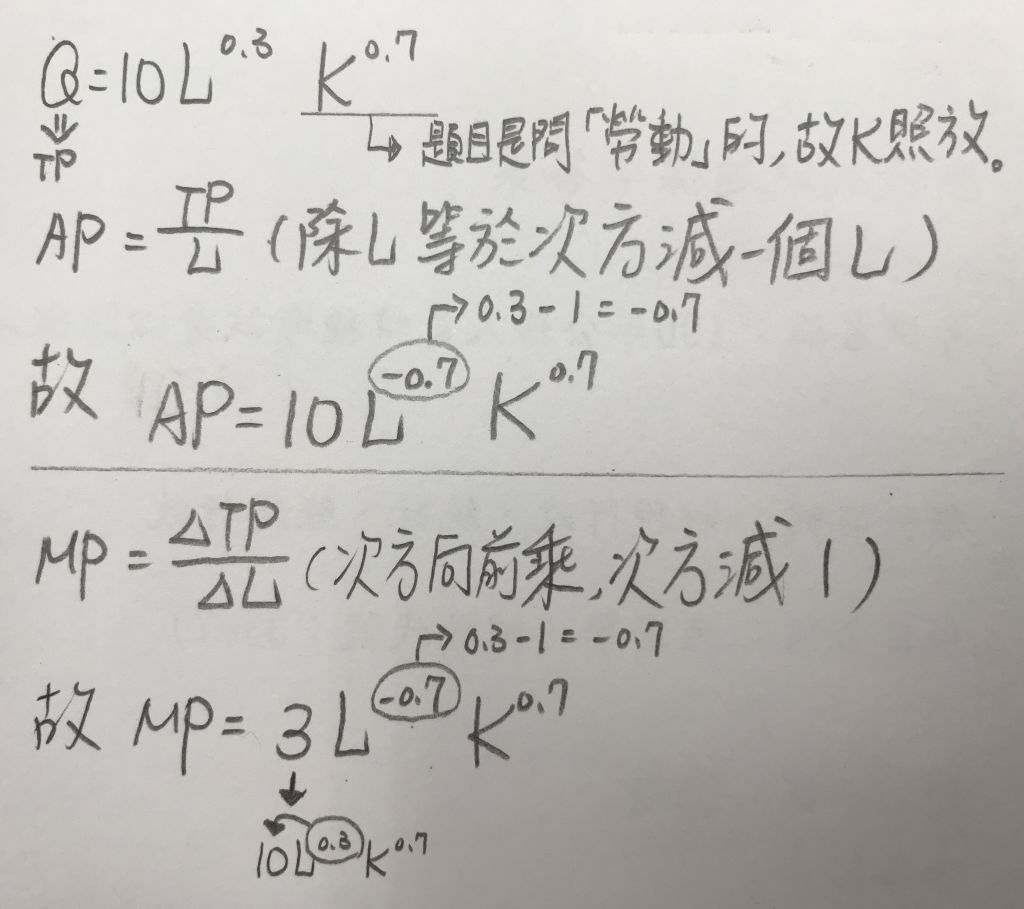 Q=10L^0.3 K^0.7
⇓
TP
↳ 題目是問「勞動」的,故K照放。
AP = TP/L (除L等於次方減一個L)
→0.3-1=-0.7
故 AP=10L^-0.7 K^0.7
MP = ΔTP/ΔL (次方向前乘,次方減1)
→0.3-1=-0.7
故 MP= 3L^-0.7 K^0.7
↓
10L^0.3 K^0.7